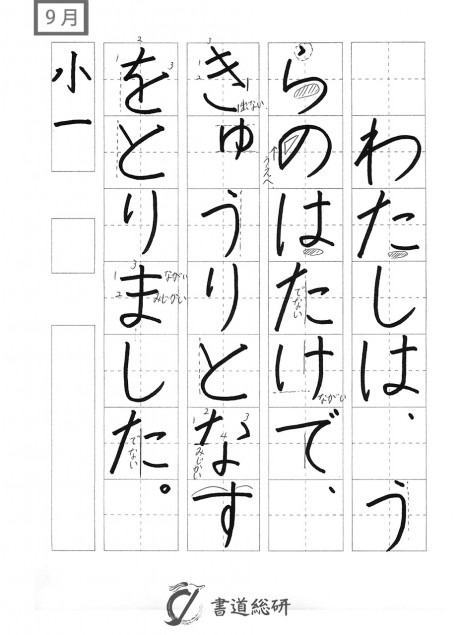 9月
わたしは、う
らのはたけで、
きゅうりとなす
をとりました。
小一
2
1
3
3
出ない
うえへ
でない
ながい
1
2
3
ながい
みじかい
1
2
3
4
みじかい
でない
書道総研